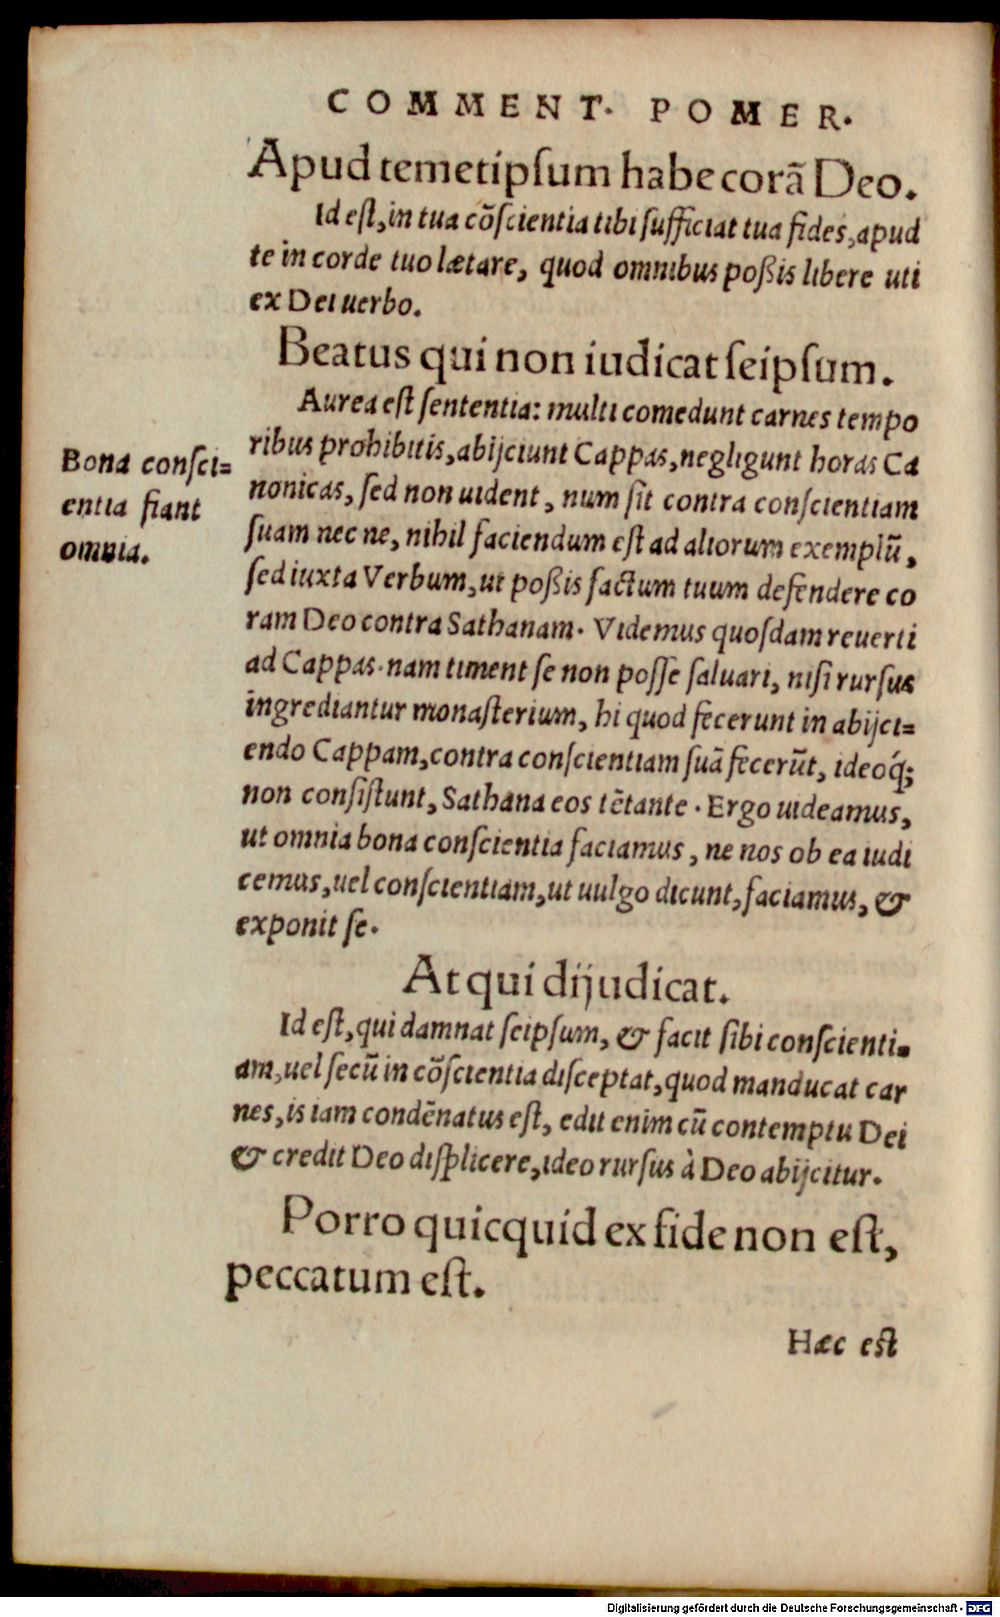 COMMENT. POMER.
Apud temetipſum habe corā Deo.
Id eſt, in tua cōſcientia tibi ſufficiat tua fides, apud
te in corde tuo lætare, quod omnibus poßis libere uti
ex Dei uerbo.
Beatus qui non iudicat ſeipſum.
Aurea eſt ſententia: multi comedunt carnes tempo
ribus prohibitis, abijciunt Cappas, negligunt horas Ca
nonicas, ſed non uident, num ſit contra conſcientiam
ſuam nec ne, nihil faciendum eſt ad aliorum exemplū,
ſed iuxta Verbum, ut poßis factum tuum defendere co
ram Deo contra Sathanam. Videmus quoſdam reuerti
ad Cappas. nam timent ſe non poſſe ſaluari, niſi rurſus
ingrediantur monaſterium, hi quod fecerunt in abijci=
endo Cappam, contra conſcientiam ſuā fecerūt, ideoq́;
non conſiſtunt, Sathana eos tētante. Ergo uideamus,
ut omnia bona conſcientia faciamus, ne nos ob ea iudi
cemus, uel conſcientiam, ut uulgo dicunt, faciamus, &
exponit ſe.
Bona conſci=
entia fiant
omnia.
At qui dijudicat.
Id eſt, qui damnat ſeipſum, & facit ſibi conſcienti-
am, uel ſecū in cōſcientia diſceptat, quod manducat car
nes, is iam condēnatus eſt, edit enim cū contemptu Dei
& credit Deo diſplicere, ideo rurſus à Deo abijcitur.
Porro quicquid ex fide non eſt,
peccatum eſt.
Hæc eſt
Digitalisierung gefördert durch die Deutsche Forschungsgemeinschaft - DFG